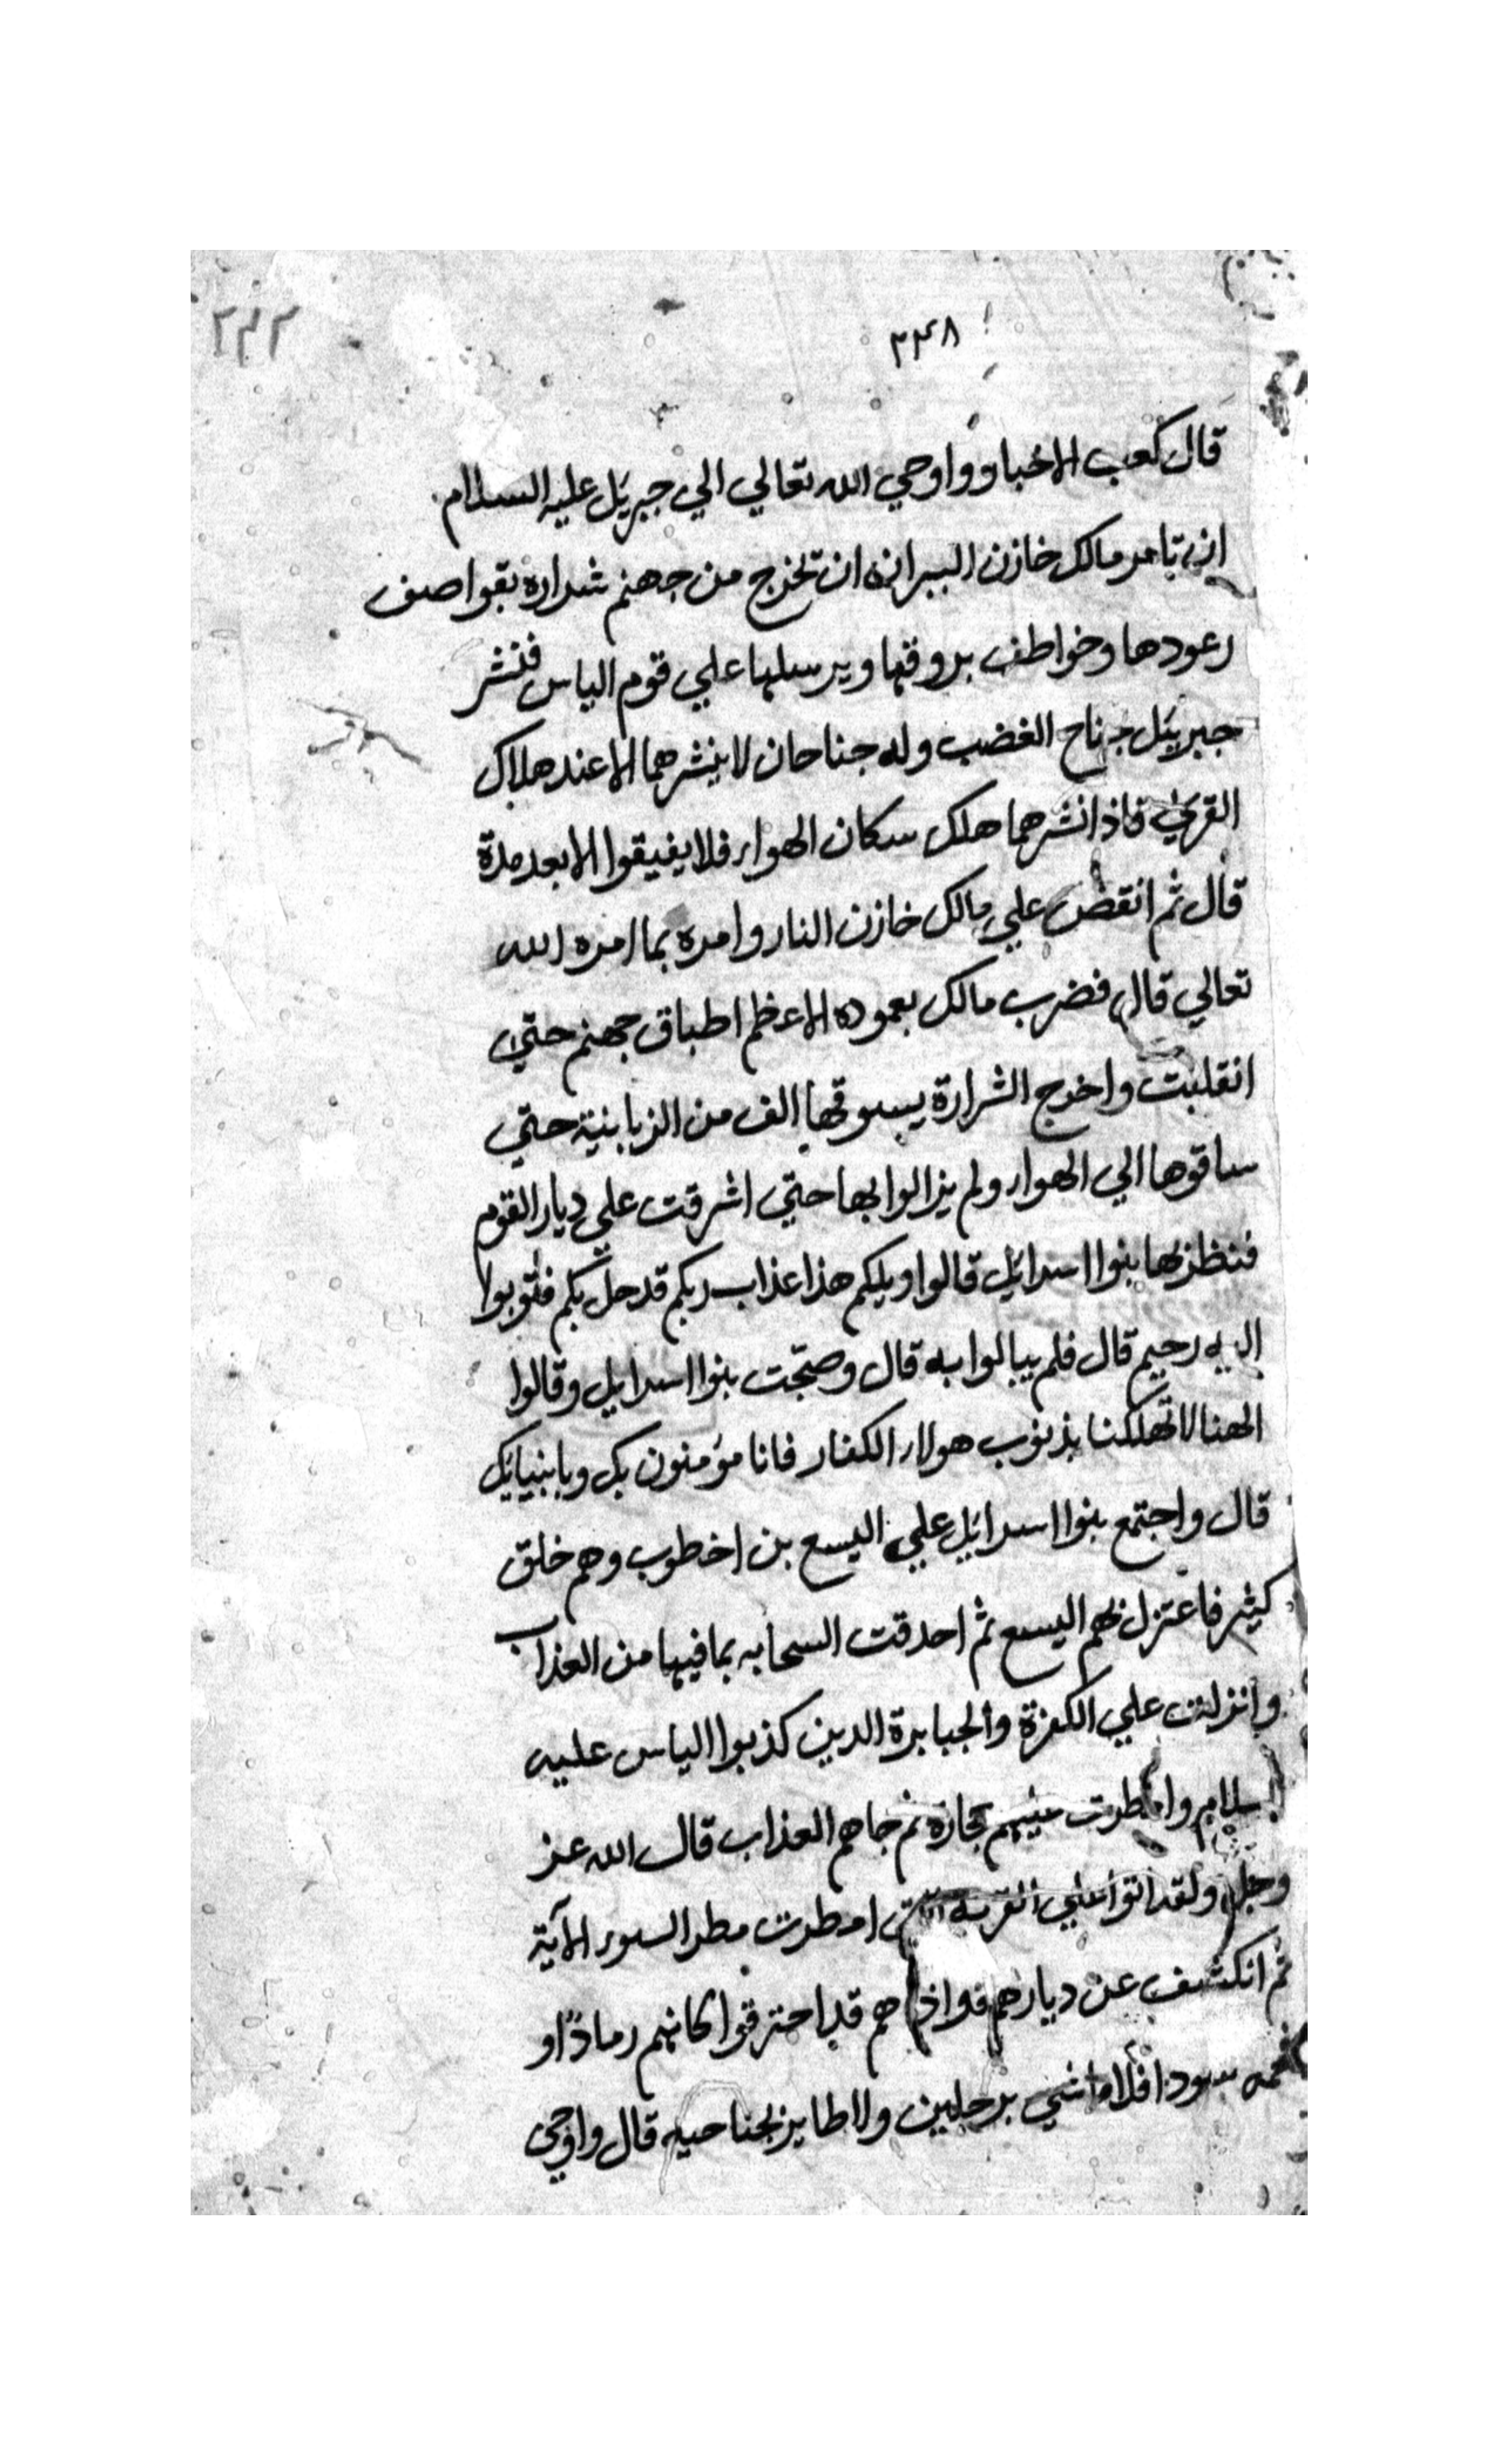 ٣٣٨
قال كعب الاخبار واوحي الله تعالي الي جبريل عليه السلام
ان تامر مالك خازن النيران ان تخرج من جهنم شراره بقواصف
رعودها وخواطف بروقها ويرسلها علي قوم الياس فنشر
جبريئل جناح الغضب وله جناحان لا ينشرهما الا عند هلاك
القري فاذا نشرهما هلك سكان الهواء فلا يفيقوا الا بعد مدة
قال ثم انقض علي مالك خازن النار وامره بما امره الله
تعالي قال فضرب مالك بعموده الاعظم اطباق جهنم حتي
انقلبت واخرج الشرارة يسوقها الف من الزبانية حتي
ساقوها الي الهواء ولم يزالوا بها حتي اشرقت علي ديار القوم
فنظر بها بنوا اسرائيل قالوا ويلكم هذا عذاب ربكم قد حل بكم فتوبوا
اليه رحيم قال فلم يبالوا به قال وضجت بنوا اسرايل وقالوا
الهنا لا تهلكنا بذنوب هولاء الكفار فانا مؤمنون بك وبانبيائك
قال واجتمع بنوا اسرائيل علي اليسع بن اخطوب وهم خلق
كثير فاعتزل بهم اليسع ثم احدقت السحابه بما فيها من العذاب
وانزلت علي الكفرة والجبابرة الدين كذبوا الياس عليه
السلام وامطرت عليهم حجارة ثم جاهم العذاب قال الله عز
وجل ولقد اتوا علي القرية التي امطرت مطر السوء الآية
ثم انكشف عن ديارهم فاذا هم قد احترقوا كانهم رمادًا او
فحمه سودا فلا ماشي برجلين ولا طاير بجناحيه قال واوحي